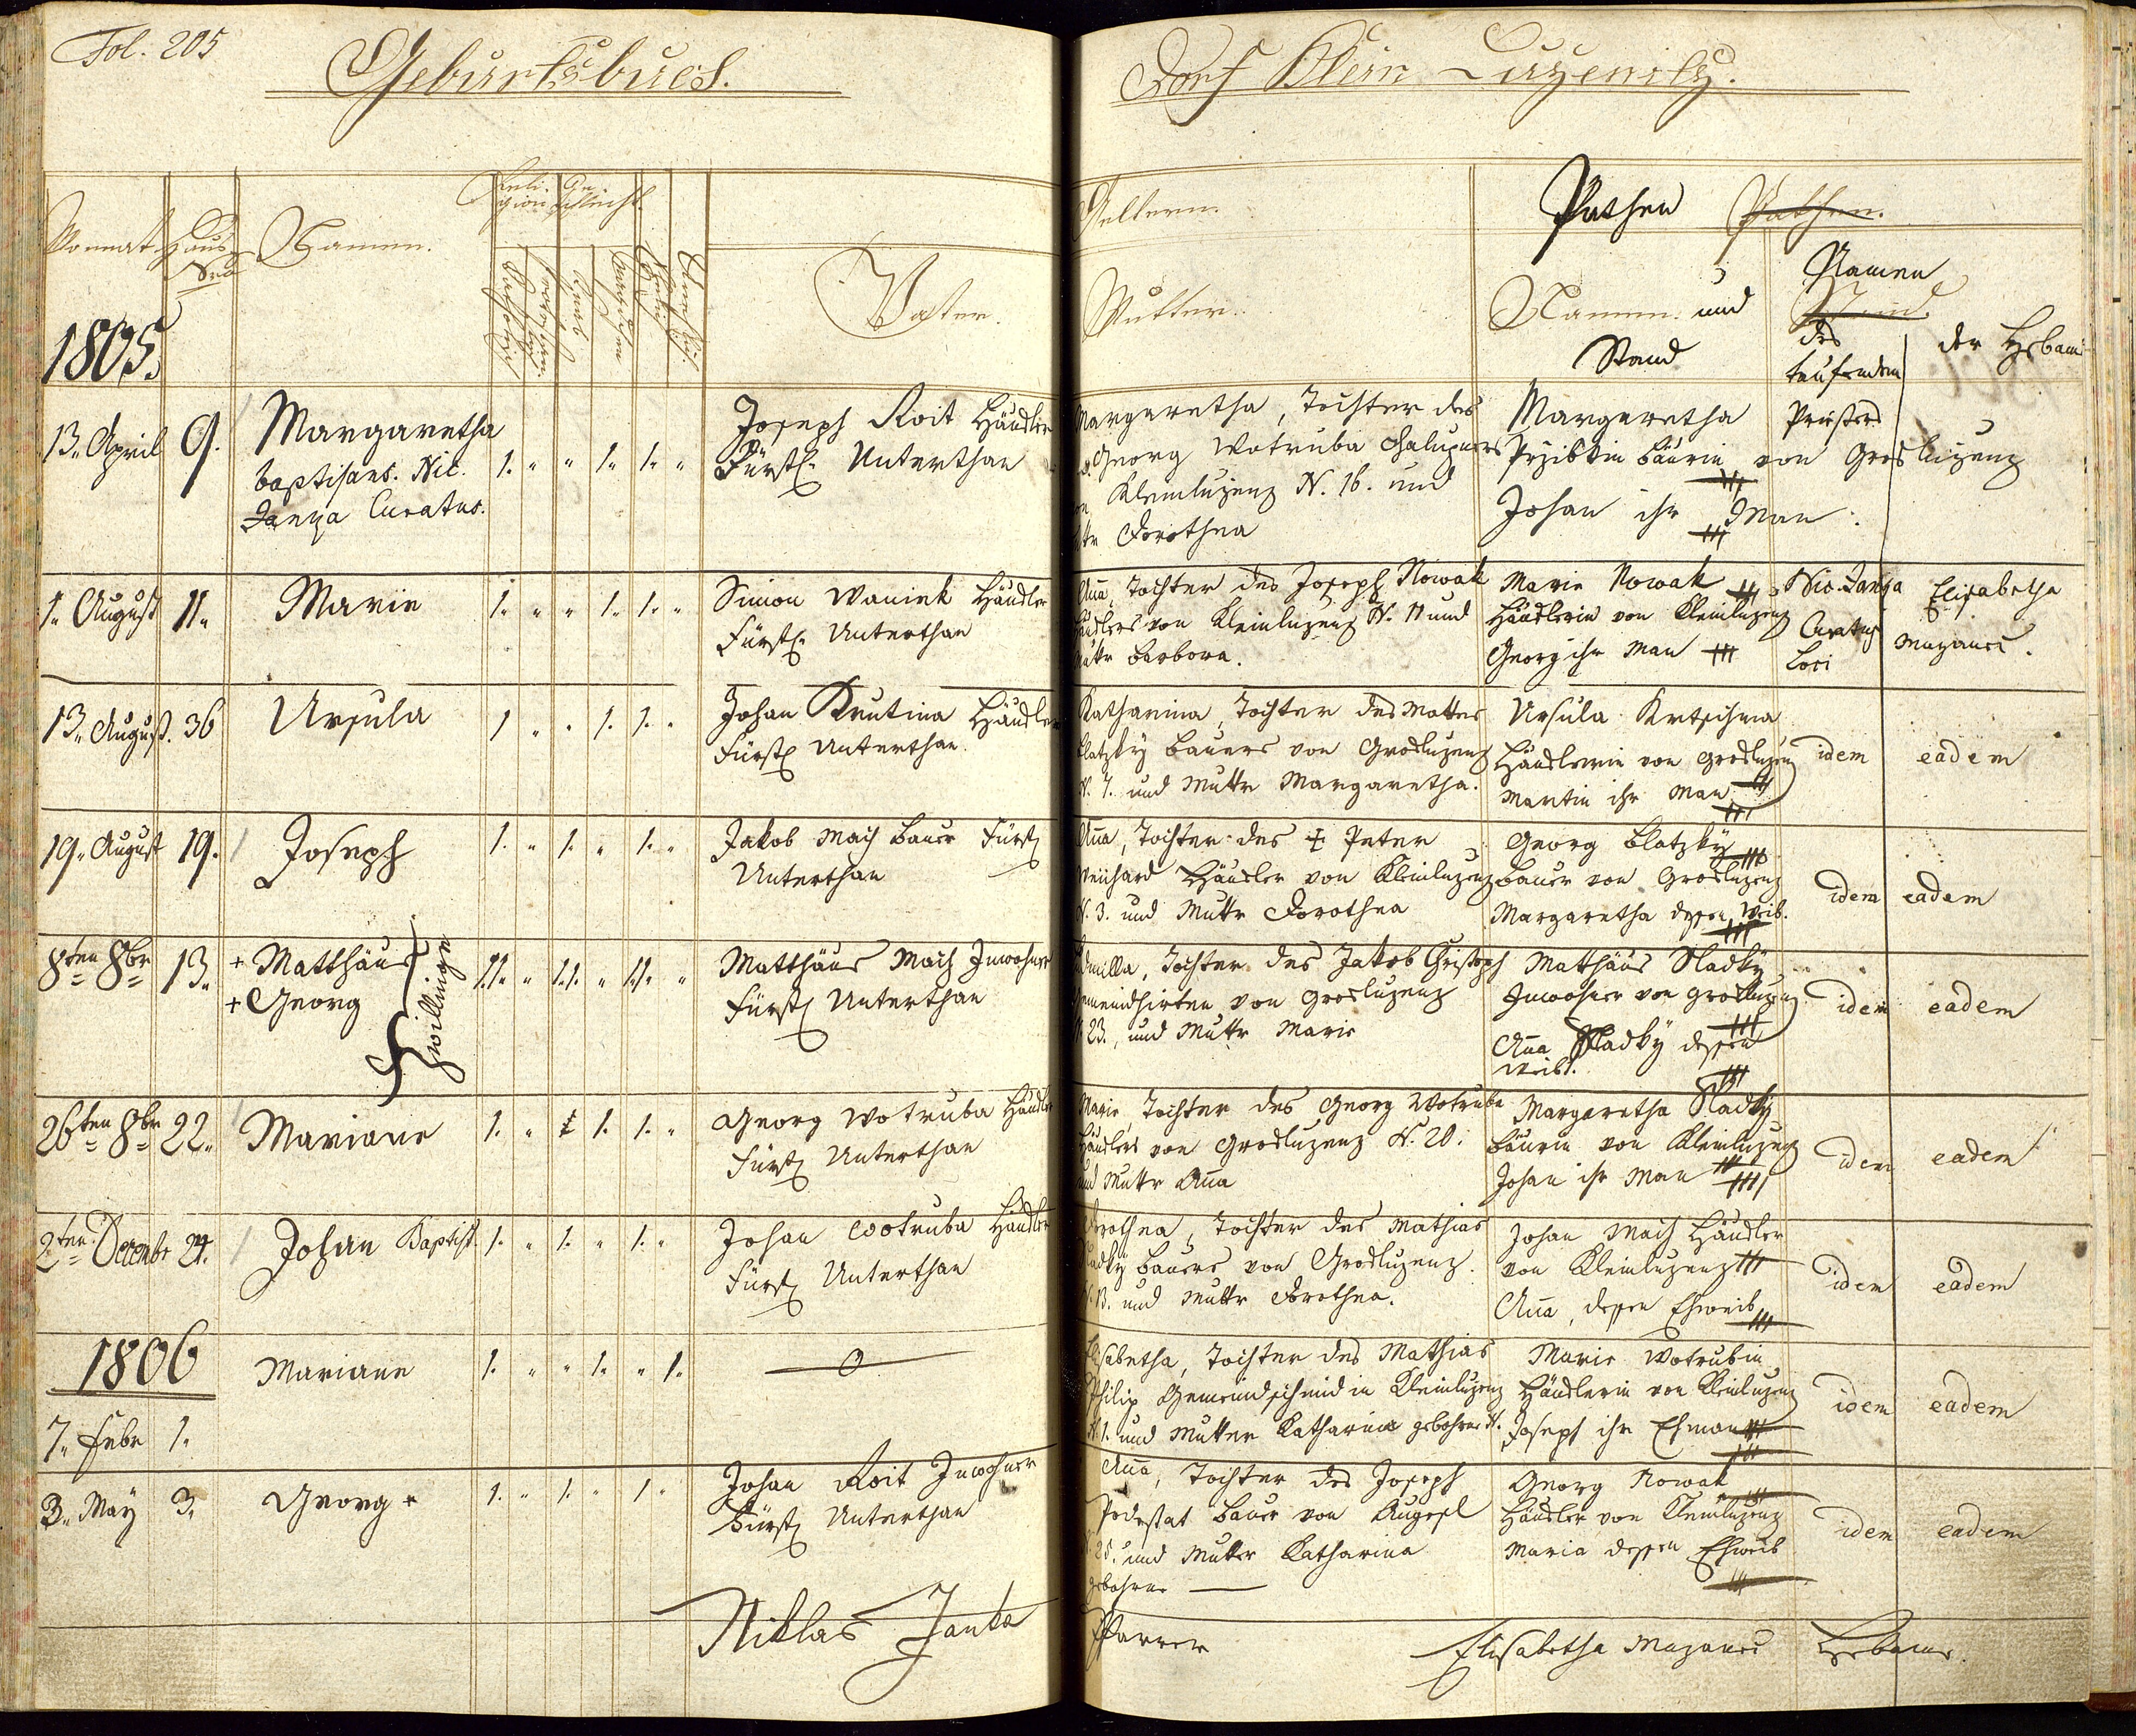 Fol. 205
Geburtsbuch.
Dorf Klein
Monnat
Haus
Nrus
Namen.
Reli-
gion
Ge-
schlecht.
Katholisch
Knab
Mägdchen
Vater.
Aeltern.
Mutter.
Pathen
Pathen.
Namen und
Stand
Namen
Stand
des
taufenden
Priesters
der Hebam
1805.
13. April
9.
Margaretha
baptisans. Nic.
Janka Curatus.
1. " " 1. 1. "
Joseph Roit Häusler
Fürstl. Unterthan
Margaretha, Tochter des
Georg Wotruba Chalupners
Kleinluzenz N. 16. und
Dorothea
Margaretha
Przibkin Bäurin von Grosluzenz
Johan ihr Man.
1. August
11.
Marie
1. " " 1. 1. "
Simon Waniek Häusler
Fürstl. Unterthan
Aña, Tochter des Joseph Nowak
Häuslers von Kleinluzenz N. 11 und
Mutter Barbora.
Marie Nowak
Häuslerin von Kleinluzenz
Georg ihr Man
Nic. Janka
Curatus
Loci
Elisabetha
Mazanec.
13. August.
36
Ursula
1 " " 1. 1. "
Johan Krutina Häusler
Fürstl Unterthan.
Katharina, Tochter des Mattes
Blatzky Bauers von Grosluzenz
N. 7. und Mutter Margaretha.
Ursula Krtschma
Häuslerin von Grosluzenz
Martin ihr Man
idem
eadem
19. August
19.
Joseph
1. " 1. " 1. "
Jakob Mach Bauer Fürstl
Unterthan
Aña, Tochter des + Peter
Häusler von Kleinluzenz
N. 3. und Mutter Dorothea
Georg Blatzky
Bauer von Grosluzenz
Margaretha dessen Weib.
idem
eadem
8ten 8br
13.
+ Matthäus
+ Georg
Zwillinge
1.1. " 1.1. " 1.1. "
Matthäus Mach Inwohner
Fürstl Unterthan
Ludmilla, Tochter des Jakob Christoph
Gemeindhirten von Grosluzenz
N 23., und Mutter Marie
Mathäus Sladky
Inwohner von Grosluzenz
Aña Sladky dessen
Weib.
idem
eadem
26ten 8br
22.
Mariane
1. " 1. 1. "
Georg Wotruba Häusler
Fürstl Unterthan
Marie, Tochter des Georg Wotruba
Häuslers von Grosluzenz N. 20.
und Mutter Aña
Margaretha Sladky
Bäurin von Kleinluzenz
Johan ihr Man
idem
eadem
2ten Decembr
24.
Johan Baptist.
1. " 1. " 1. "
Johan Wotruba Häusler
Fürstl Unterthan
Dorothea, Tochter des Mathias
Sladky Bauers von Grosluzenz.
N. 13. und Mutter Dorothea.
Johan Mach Häusler
von Kleinluzenz
Aña, dessen Eheweib
idem
eadem
1806
7. Febr
1.
Mariane
1. " " 1. " 1.
—0—
Elisabetha, Tochter des Mathias
Philip Gemeindschmid in Kleinluzenz
N. 1. und Mutter Katharina gebohrne N.
Marie Wotrubin
Häuslerin von Kleinluzenz
Joseph ihr Ehman
idem
eadem
3. May
3.
Georg +
1. " 1. " 1 "
Johan Roit Inwohner
Fürstl Unterthan
Aña, Tochter des Joseph
Podestat Bauer von Augezl
N. 25. und Mutter Katharina
gebohrne —
Georg Nowak
Häusler von Kleinluzenz
Maria dessen Eheweib
idem
eadem
Niklas Janka
Pfarrer
Elisabetha Mazanec
Hebame.